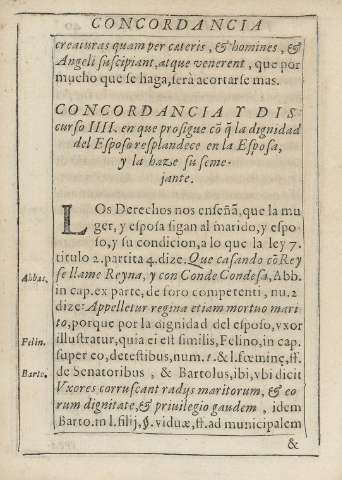 CONCORDANCIA
creaturas quam per cateris, & homines, &
Angeli suscipiant, atque venerent, que por
mucho que se haga, serà acortarse mas.
CONCORDANCIA Y DIS
curso IIII. en que prosigue cõ q̃ la dignidad
del Esposo resplandece en la Esposa,
y la haze su seme-
jante.
LOs Derechos nos enseñã, que la mu
ger, y esposa sigan al marido, y espo-
so, y su condicion, a lo que la ley 7.
titulo 2. partita 4. dize. Que casando cõ Rey
se llame Reyna, y con Conde Condesa, Abb.
Abbas.
in cap. ex parte, de foro competenti, nu. 2
dize: Appelletur regina etiam mortuo mari
to, porque por la dignidad del esposo, vxor
illustratur, quia ei est similis, Felino, in cap.
Felin.
super eo, de testibus, num. 1. & l. fœmine, ff.
de Senatoribus, & Bartolus, ibi, vbi dicit
Barto.
Vxores corruscant radys maritorum, & eo
rum dignitate, & priuilegio gaudem, idem
Barto. in l. filij, §. viduæ, ff. ad municipalem
&